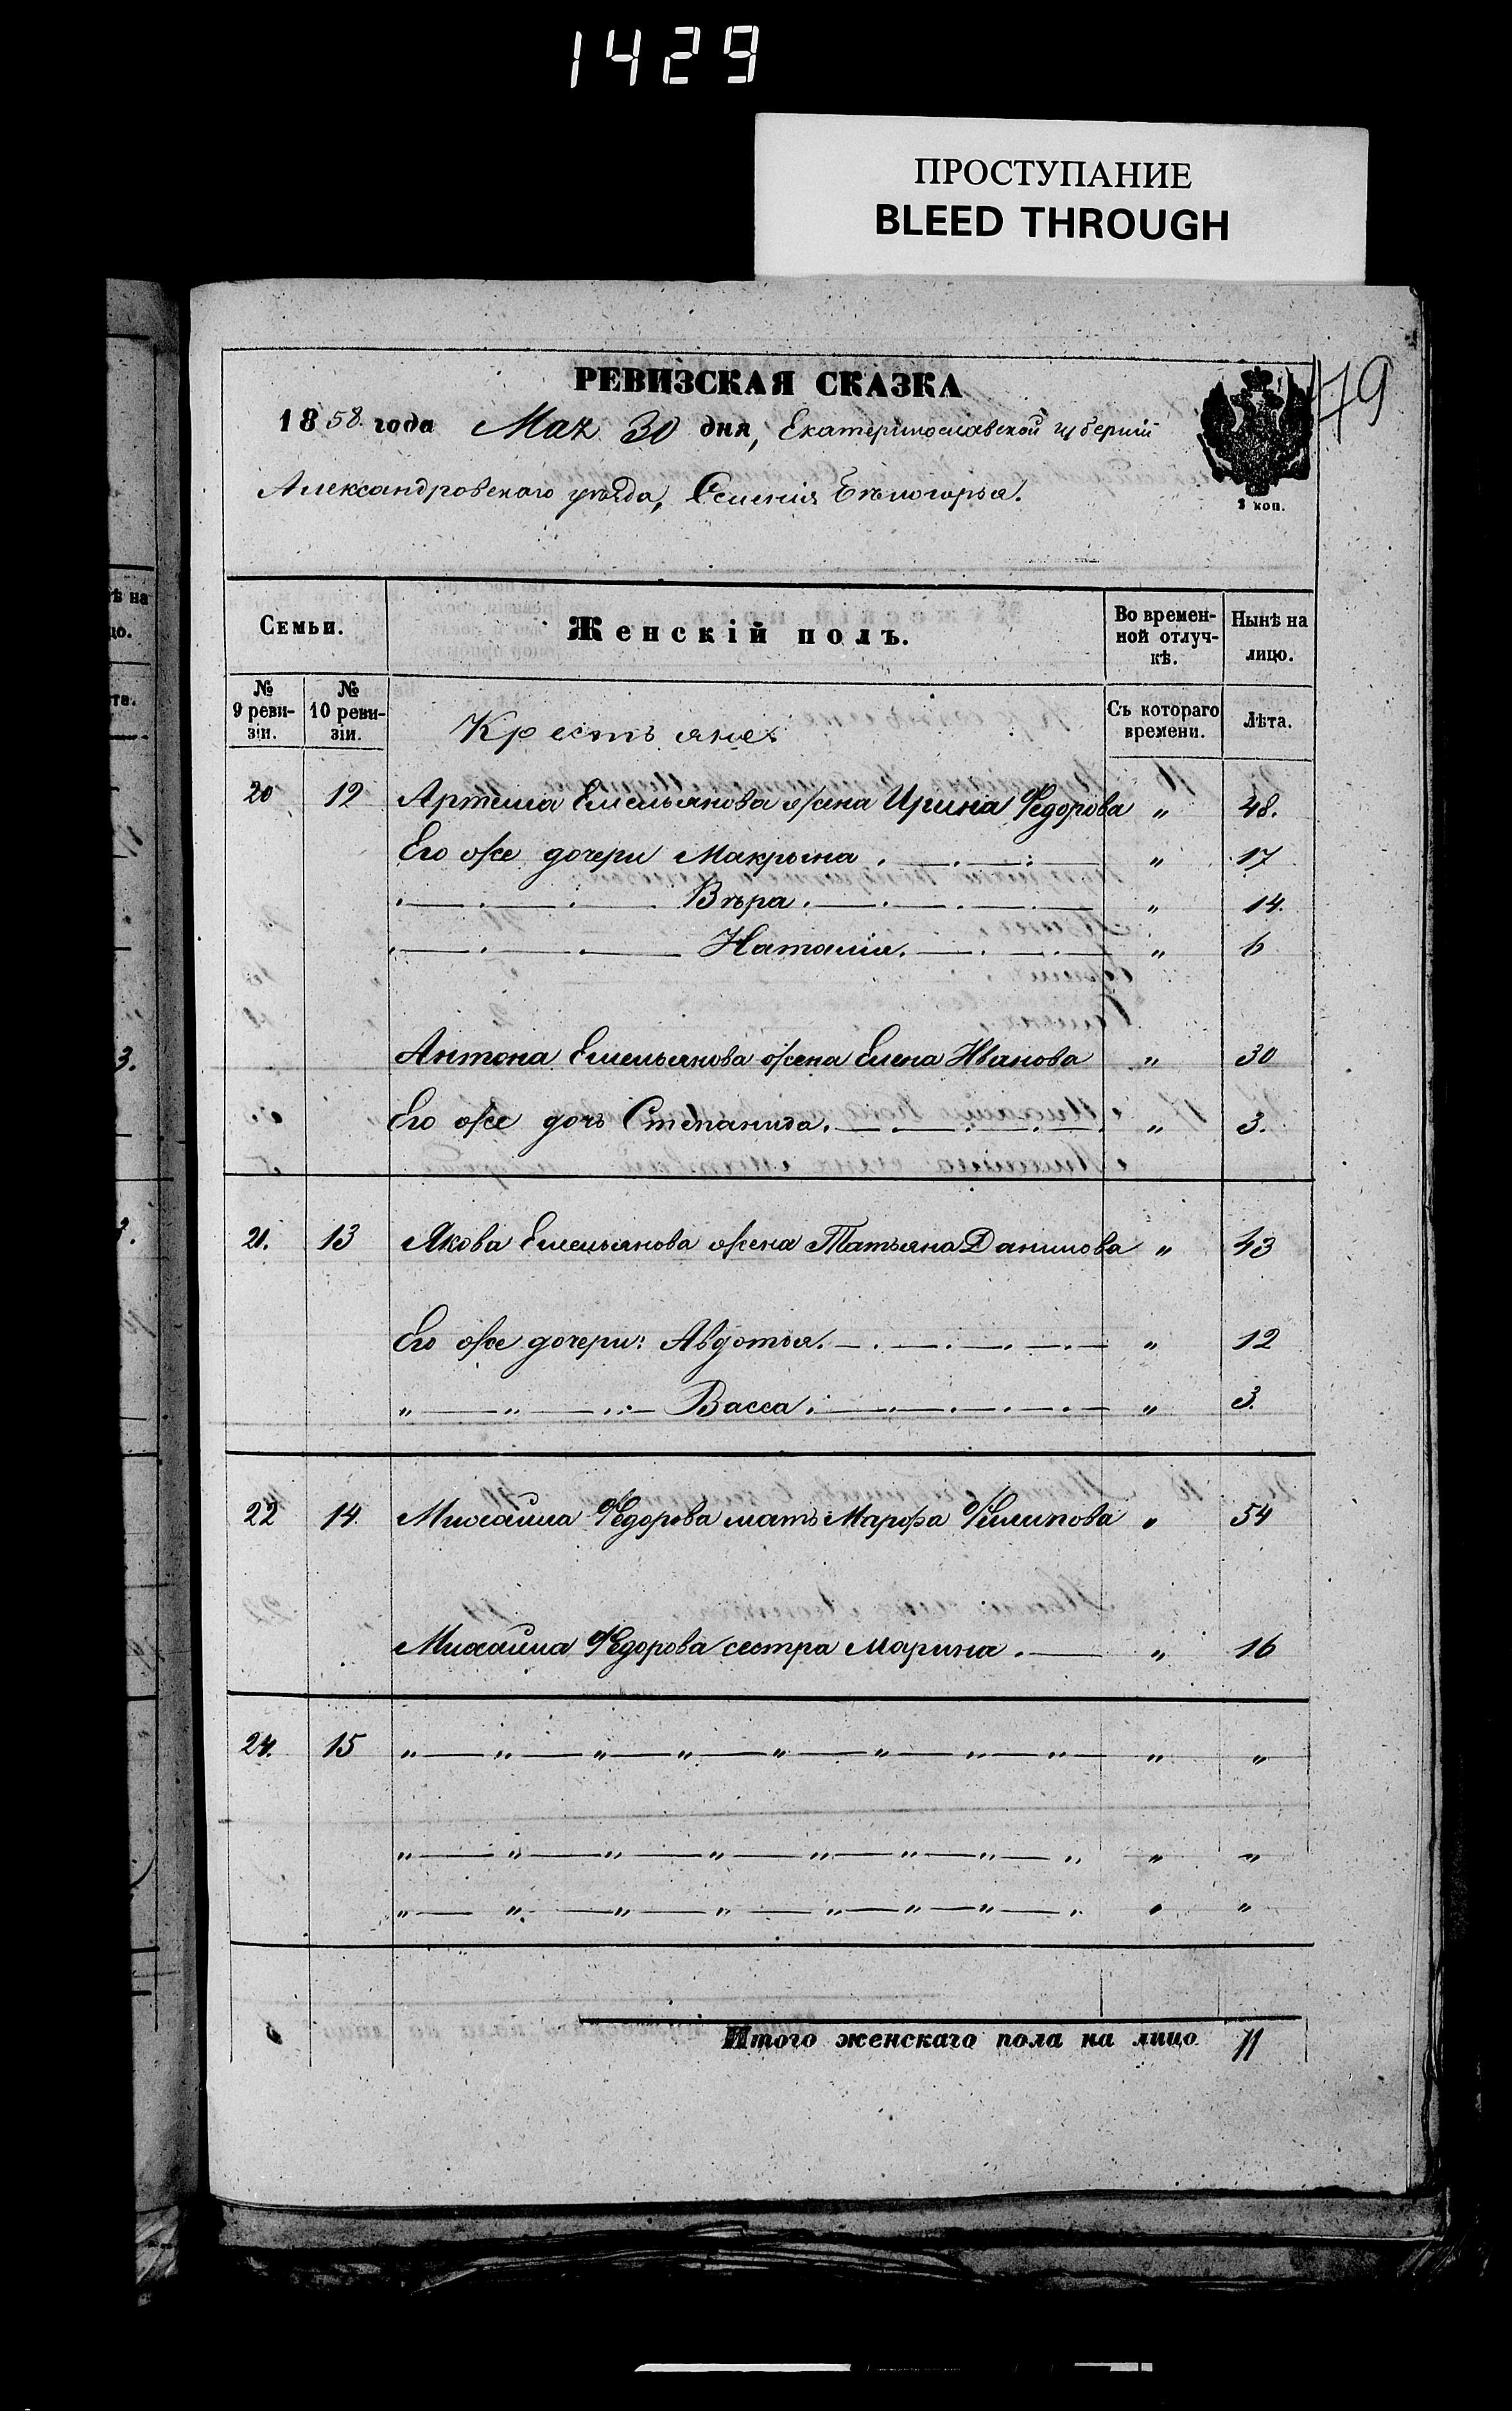 1429
ПРОСТУПАНИЕ
BLEED THROUGH
179
РЕВИЗСКАЯ СКАЗКА
1858 года Мая 30 дня, Екатеринославской губерніи
2 коп.
Александровскаго уѣзда, Селенія Бѣлогорья.
Семьи. Женскій полъ. Во временной отлучкѣ. Нынѣ на лицо.
№ 9 ревизіи. № 10 ревизіи. Крестьяне Съ котораго времени. Лѣта.
20 12 Артема Емельянова жена Ирина Федорова „ 48.
Его же дочери Макрына „ 17
Вѣра „ 14.
Наталія „ 6
Антона Емельянова жена Елена Иванова „ 30
Его же дочь Степанида „ 3.
21. 13 Якова Емельянова жена Татьяна Данилова „ 43
Его же дочери: Авдотья „ 12
„ „ Васса „ 3.
22 14. Михайла Федорова мать Марфа Филипова „ 54
Михайла Федорова сестра Марина „ 16
24. 15 „ „ „ „ „ „ „ „ „ „
„ „ „ „ „ „ „ „ „ „
„ „ „ „ „ „ „ „ „ „
Итого женскаго пола на лицо 11